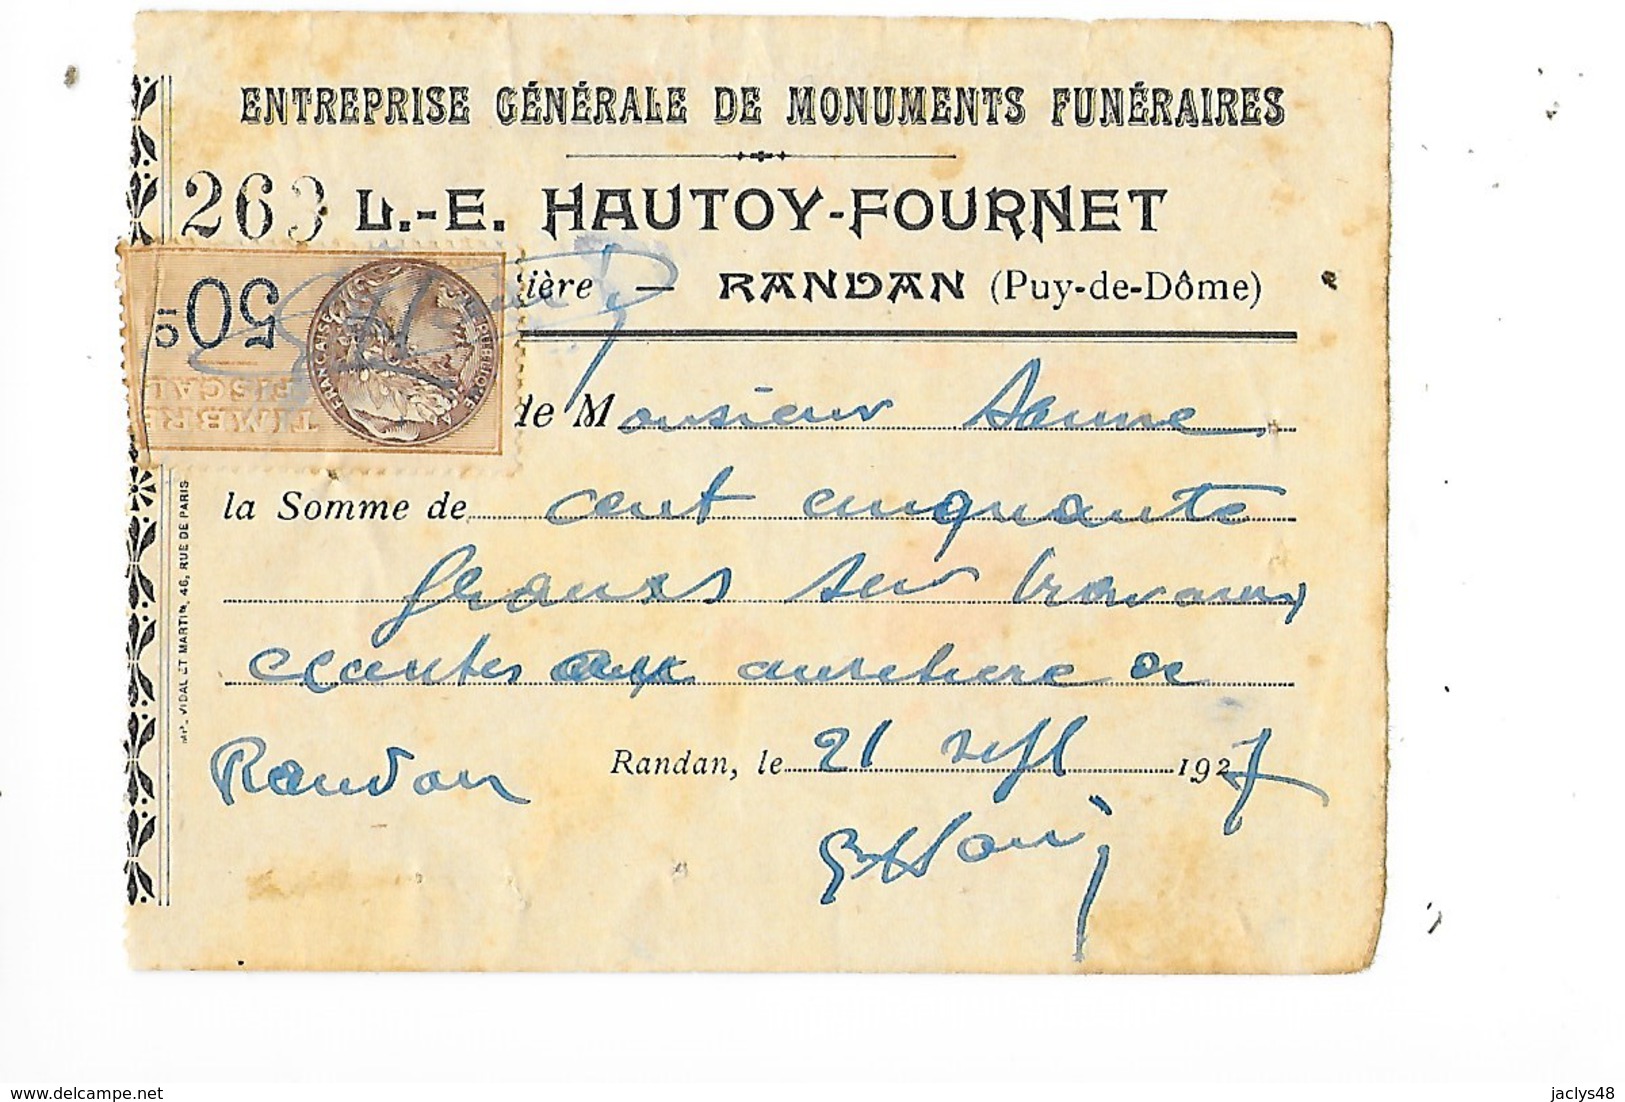 ENTREPRISE GÉNÉRALE DE MONUMENTS FUNÉRAIRES
263 L.-E. HAUTOY-FOURNET
ière — RANDAN (Puy-de-Dôme)
50
TIMBRE FISCAL
RÉPUBLIQUE FRANÇAISE
de Monsieur
la Somme de cent cinquante
francs sur travaux
de
Randan
Randan, le 21 sept 1927
IMP. VIDAL ET MARTIN, 46, RUE DE PARIS
delcampe.net
jaclys48